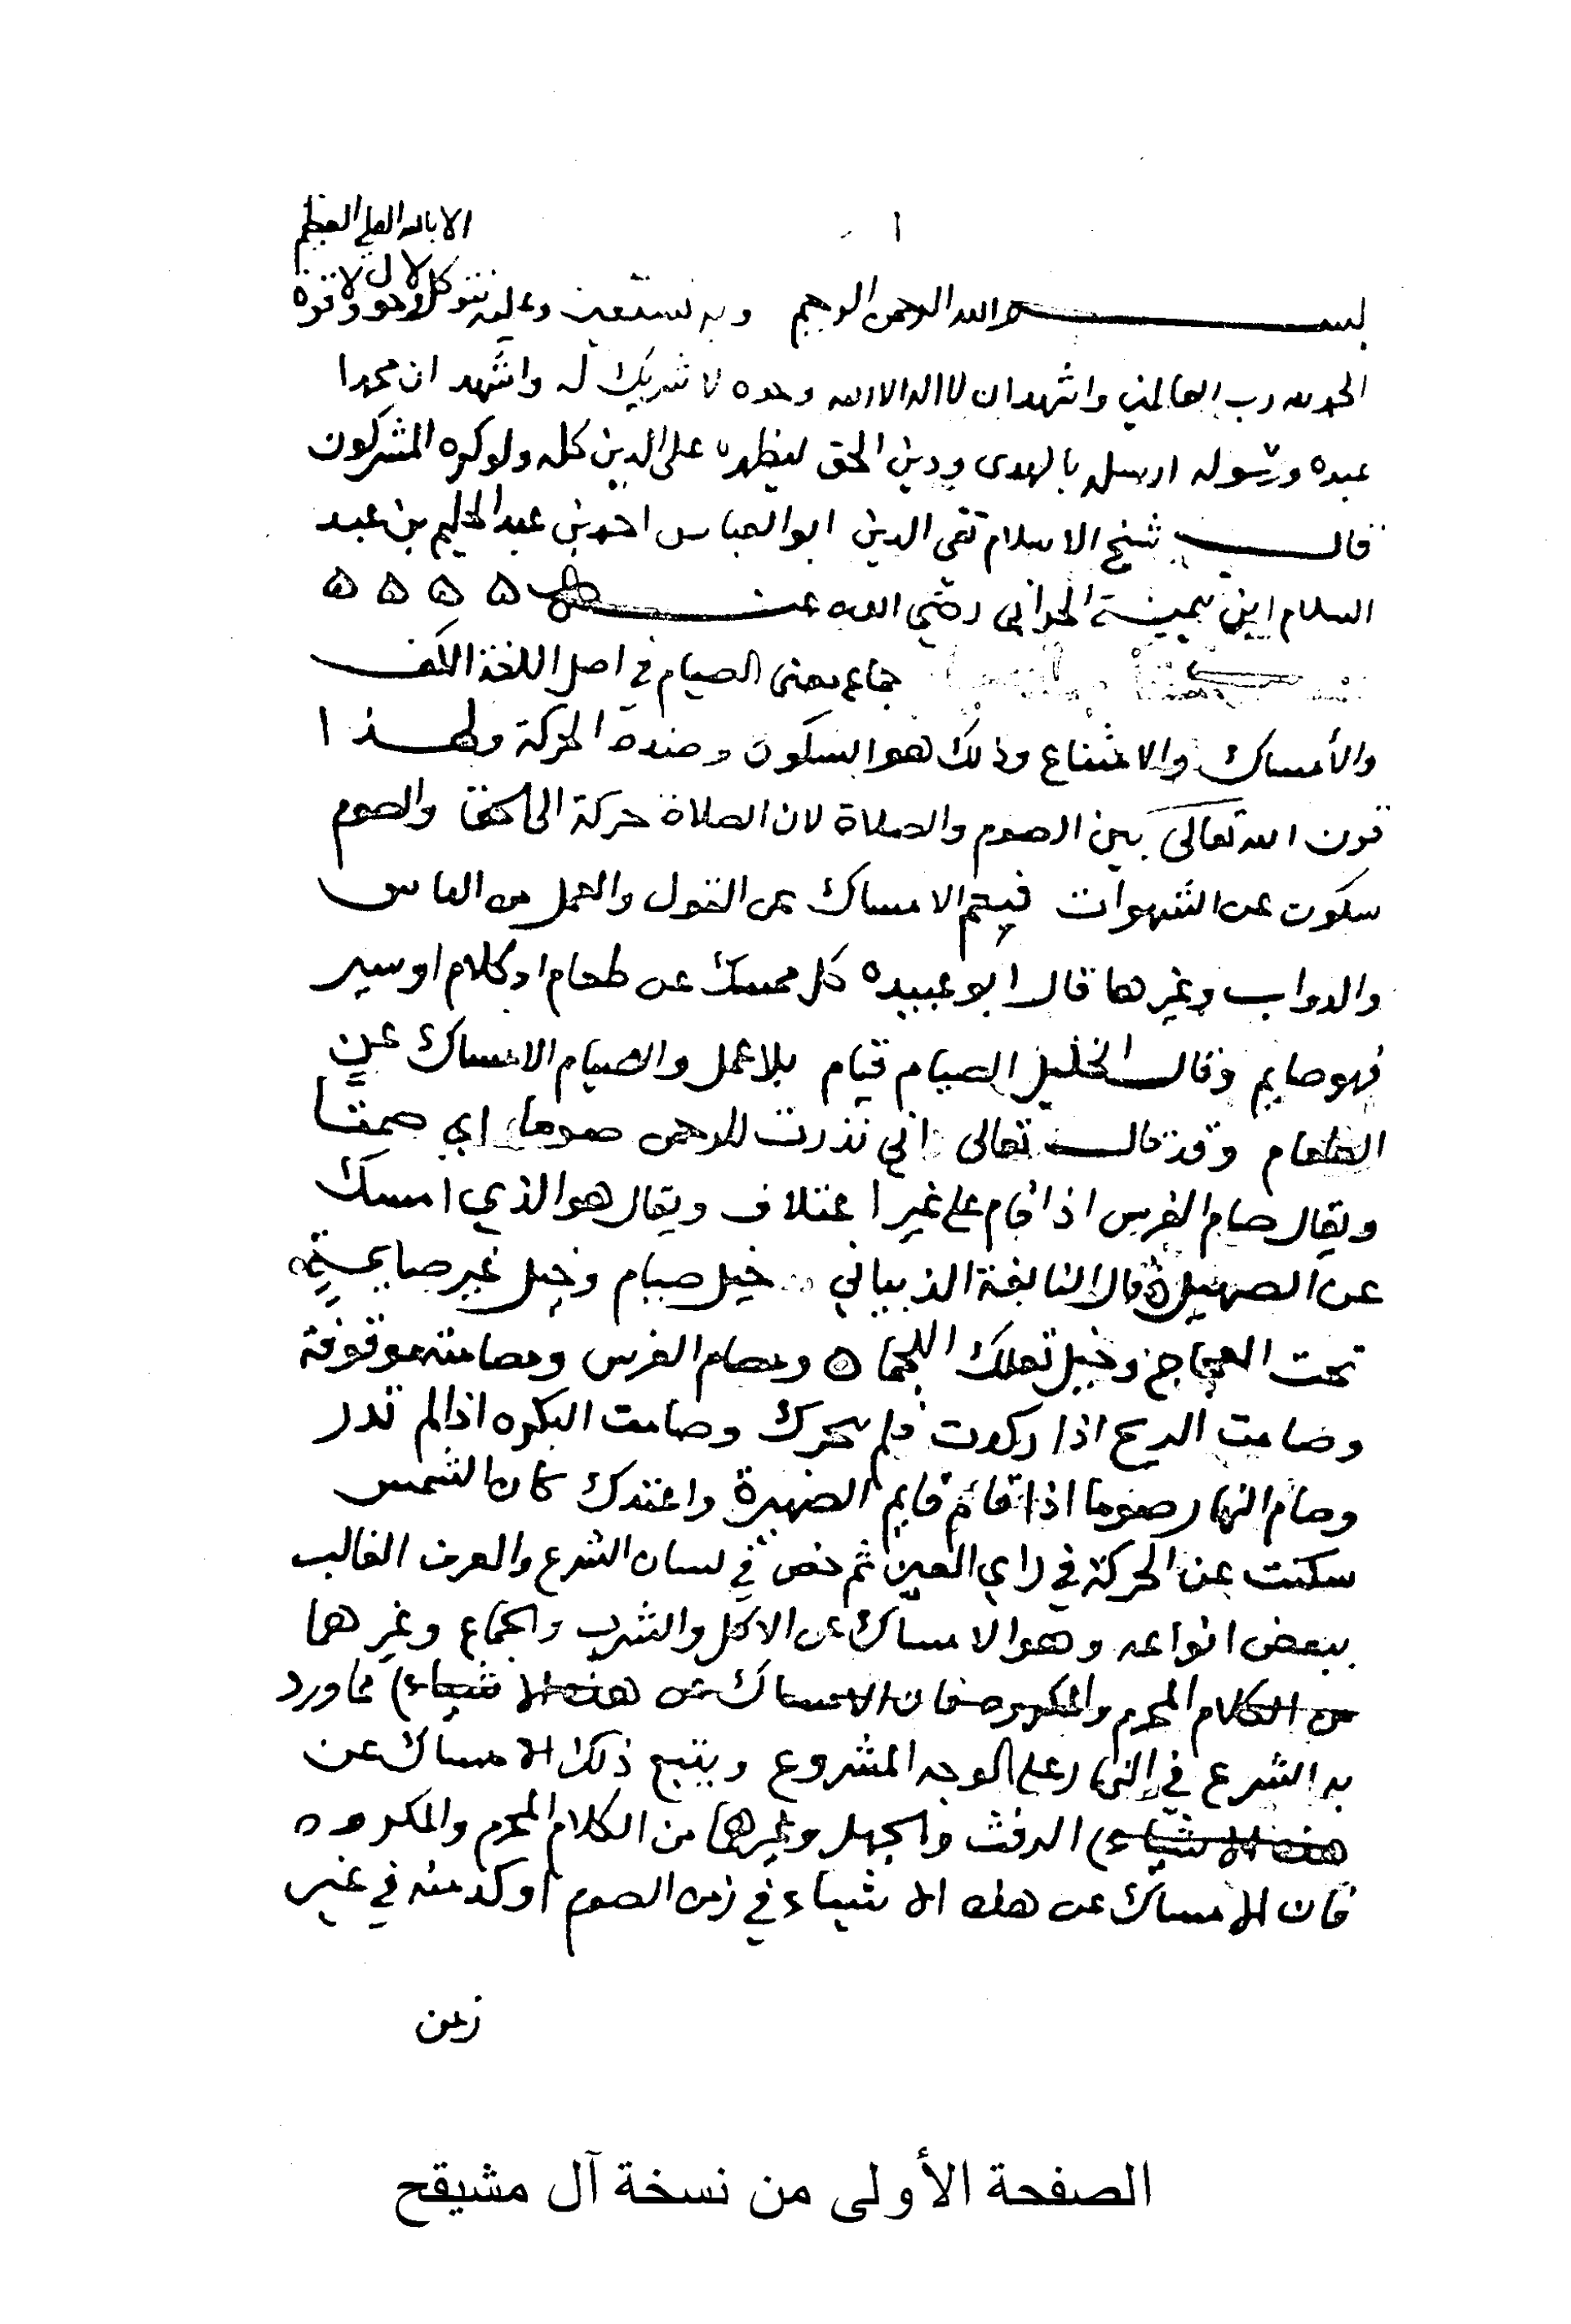 ا
بسم الله الرحمن الرحيم وبه نستعين وعليه نتوكل ولا حول ولا قوة
الا بالله العلي العظيم
الحمد لله رب العالمين واشهد ان لا اله الا الله وحده لا شريك له واشهد ان محمدا
عبده ورسوله ارسله بالهدى ودين الحق ليظهره على الدين كله ولو كره المشركون
قال شيخ الاسلام تقي الدين ابو العباس احمد بن عبد الحليم بن عبد
السلام ابن تيمية الحراني رضي الله عنه ه ه ه ه
جماع معنى الصيام في اصل اللغة الكف
والأمساك والامتناع وذلك هو السكون وضده الحركة ولهذا
قرن الله تعالى بين الصوم والصلاة لان الصلاة حركة الى الحق والصوم
سكون عن الشهوات فيعم الامساك عن القول والعمل من الناس
والدواب وغيرها قال ابو عبيده كل ممسك عن طعام او كلام او سير
فهو صايم وقال الخليل الصيام قيام بلا عمل والصيام الامساك عن
الطعام وقد قال تعالى اني نذرت للرحمن صوما اي صمتا
ويقال صام الفرس اذا قام على غير اعتلاف ويقال هو الذي امسك
عن الصهيل ه قال النابغة الذبياني خيل صيام وخيل غير صايمة
تحت العجاج وخيل تعلك اللجما ه ومصام الفرس ومصامته موقوفة
وصامت الريح اذا ركدت فلم تحرك وصامت البكره اذا لم تدر
وصام النهار صوما اذا قام قايم الضهيرة واعتدك كان الشمس
سكنت عن الحركة في راي العين ثم خص في لسان الشرع والعرف الغالب
ببعض انواعه وهو الامساك عن الاكل والشرب والجماع وغيرهما
من الكلام المحرم والمكروه فان الامساك عن هذه الاشياء) مما ورد
به الشرع في النهار على الوجه المشروع ويتبع ذلك الامساك عن
هذه الاشياء) الرفث والجهل وغيرها من الكلام المحرم والمكروه
فان الامساك عن هذه الاشياء في زمن الصوم اوكد منه في غير
زمن
الصفحة الأولى من نسخة آل مشيقح